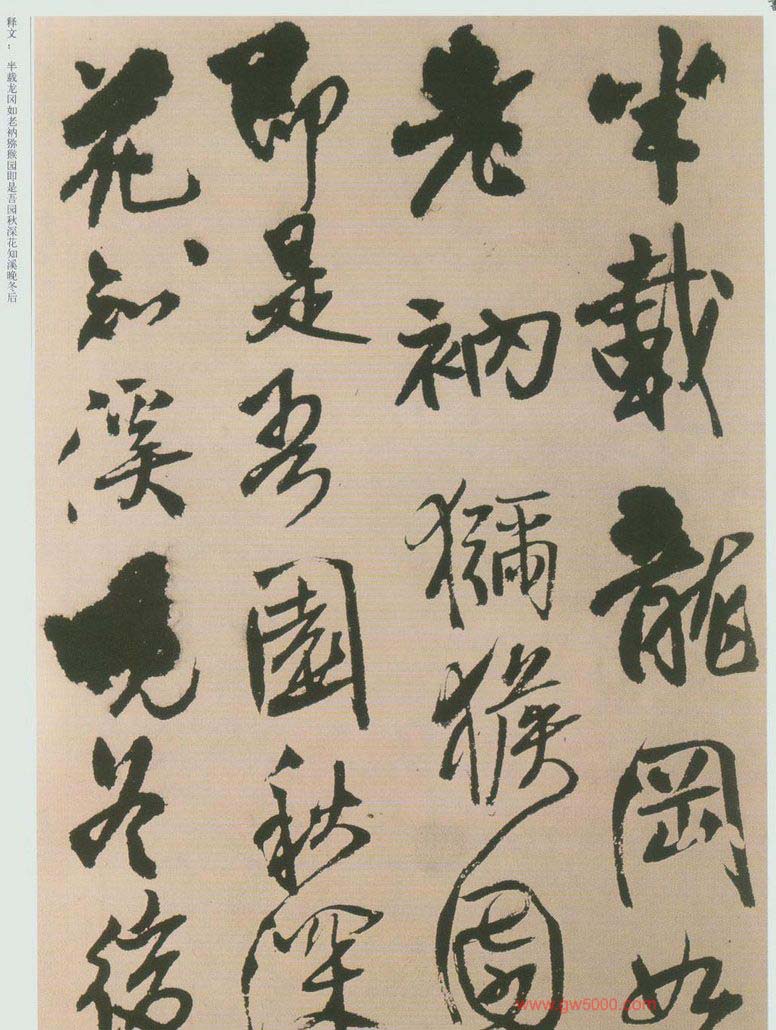 半載龍岡如
老衲獼猴園
即是吾園秋深
花知溪晚冬後
释文： 半载龙冈如老衲猕猴园即是吾园秋深花知溪晚冬后
www.gw5000.com